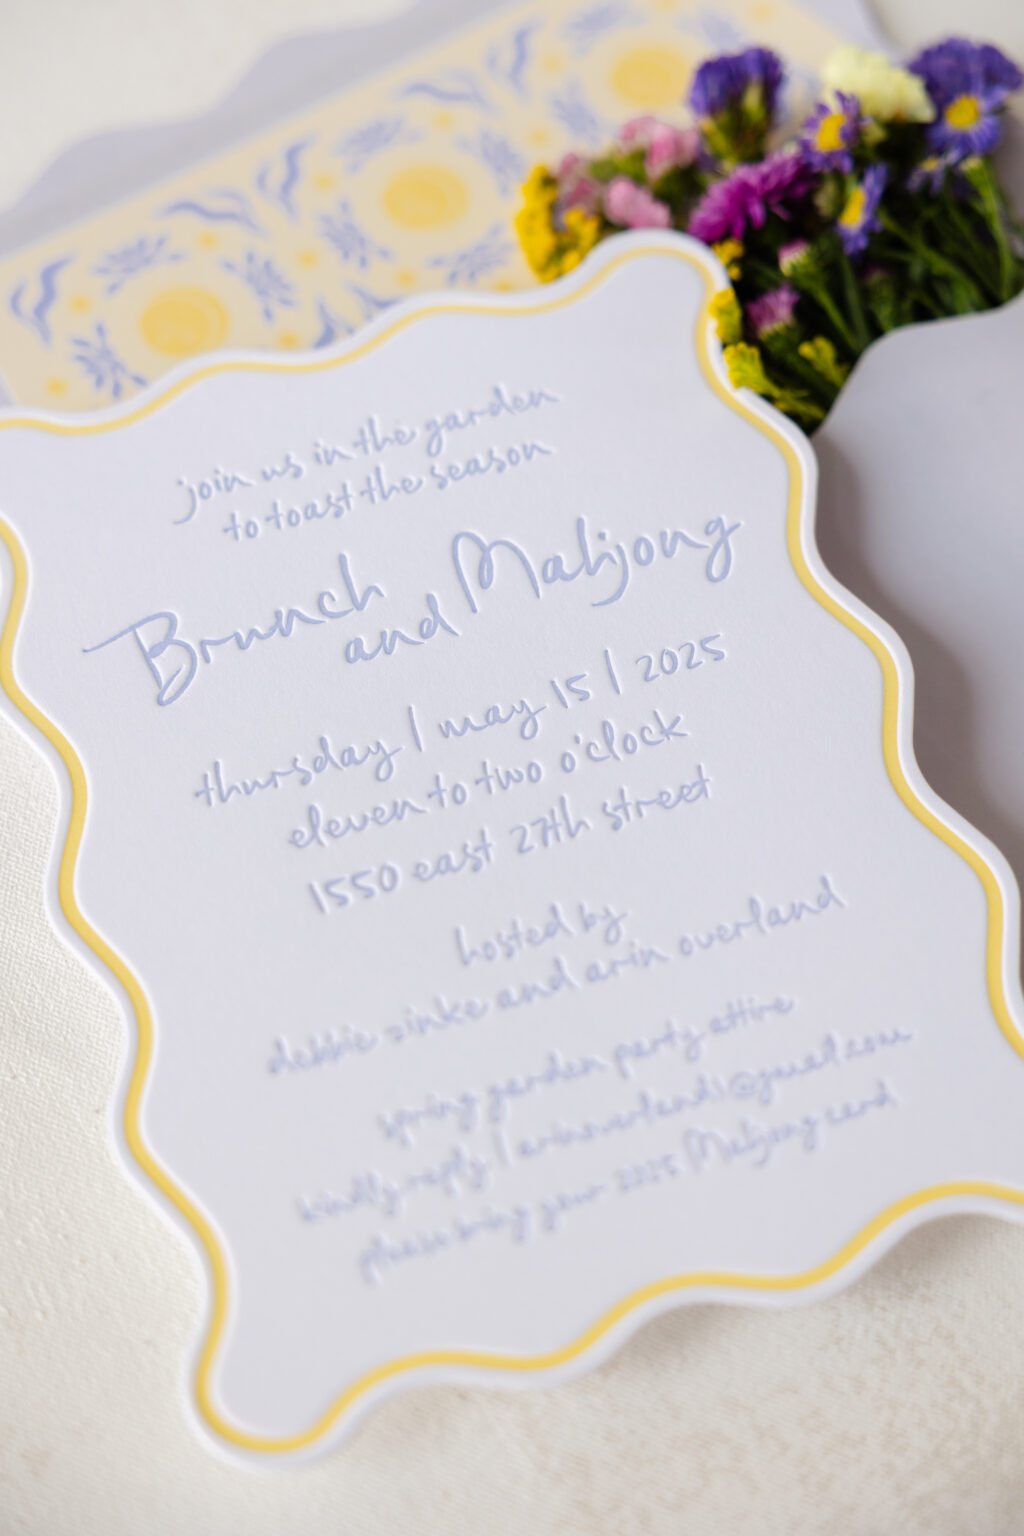 join us in the garden
to toast the season
Brunch
and Mahjong
thursday | may 15 | 2025
eleven to two o'clock
1550 east 27th street
hosted by
debbie zinke and arin overland
spring garden party attire
kindly reply | arinoverland1@gmail.com
please bring your 2025 Mahjong card